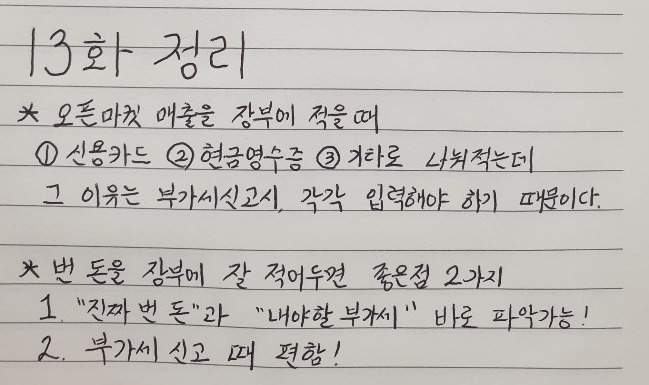 13화 정리
* 오픈마켓 매출을 장부에 적을때
① 신용카드 ② 현금영수증 ③ 기타로 나눠적는데
그 이유는 부가세신고시, 각각 입력해야 하기 때문이다.
* 번 돈을 장부에 잘 적어두면 좋은점 2가지
1. "진짜 번 돈"과 "내야할 부가세" 바로 파악가능!
2. 부가세 신고 때 편함!